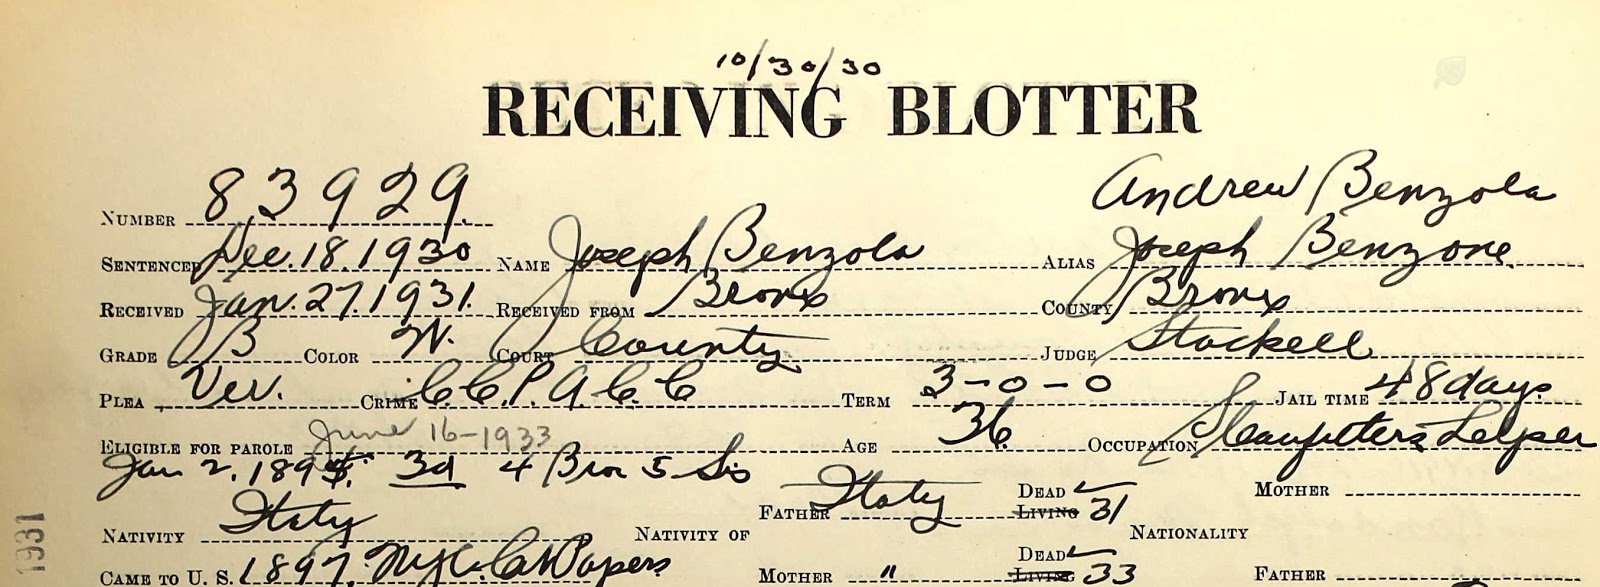 10/30/30
RECEIVING BLOTTER
Andrew Benzola
NUMBER 83929.
SENTENCED Dec. 18. 1930 NAME Joseph Benzola ALIAS Joseph Benzone
RECEIVED Jan. 27. 1931. RECEIVED FROM Bronx COUNTY Bronx
GRADE B COLOR W. COURT County JUDGE Stackell
PLEA Ver. CRIME C.C.P.A.C.C TERM 3-0-0 JAIL TIME 48 days.
ELIGIBLE FOR PAROLE June 16-1933 AGE 36. OCCUPATION
Jan 2, 189 3d 4 Bro 5 Sis
FATHER Italy DEAD ✓ LIVING 31 MOTHER
NATIVITY Italy NATIVITY OF NATIONALITY
CAME TO U. S. 1897. NYC. Papers MOTHER " DEAD ✓ LIVING 33 FATHER
1931